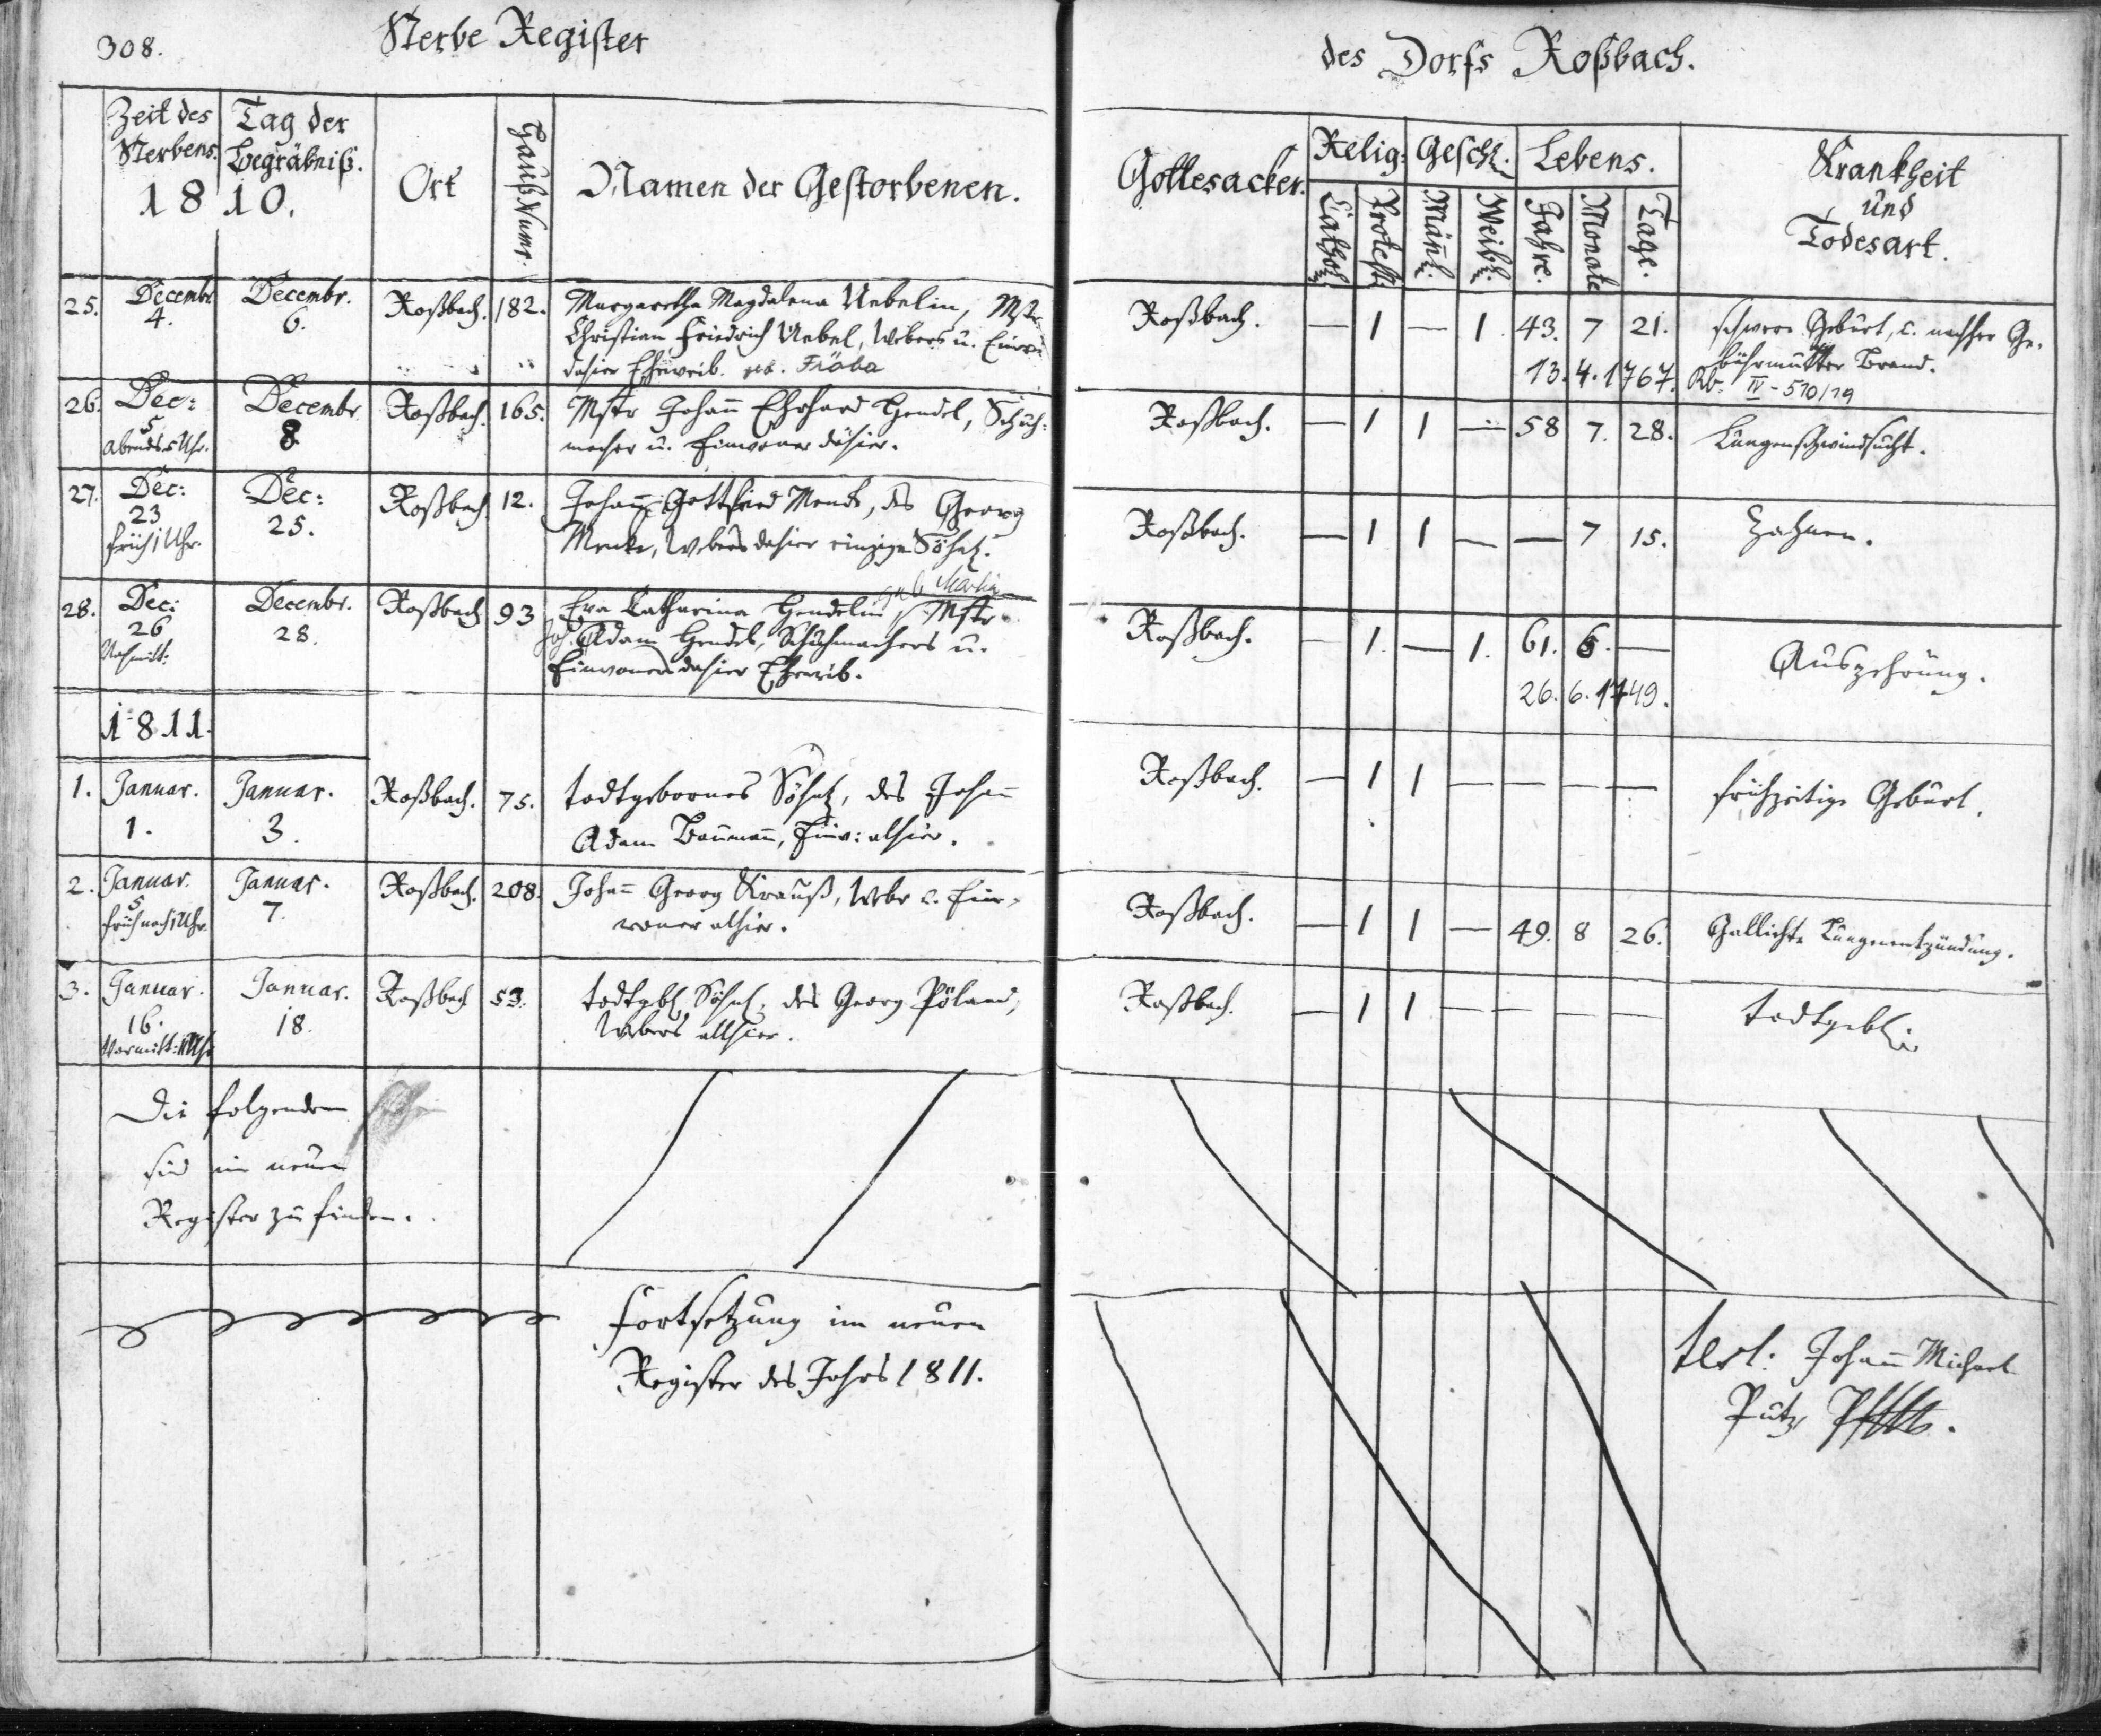 308.
Sterbe Register
des Dorfs Roßbach.
Zeit des Sterbens.
Tag der Begräbniß.
1810.
Ort
Hauß Numr.
Namen der Gestorbenen.
Gottesacker.
Relig:
Cathol.
Protest.
Geschl.
Mänl.
Weibl.
Lebens.
Jahre.
Monate
Tage.
Krankheit
und
Todesart.
25. Decembr. 4. Decembr. 6. Roßbach. 182. Margaretha Magdalena Uebelin, Mstr.
Christian Friedrich Uebel, Webers u. Einw.
dahier Eheweib. geb. Fröba
Roßbach. — 1 — 1. 43. 7 21. schwere Geburt, u. nachher Ge-
bährmutter Brand.
13.4.1767. Rb. IV - 510/19
26. Dec: 5 Abends 5 Uhr. Decembr. 8 Roßbach. 165. Mstr Johann Ehrhard Hendel, Schuh-
macher u. Einwoner dahier.
Roßbach. — 1 1 — 58 7. 28. Lungenschwindsucht.
27. Dec: 23 früh 1 Uhr. Dec: 25. Roßbach. 12. Johann Gottfried Menke, des Georg
Menke, Webers dahier einzige Söhnl.
Roßbach. — 1 1 — — 7 15. Zahnen.
28. Dec: 26 Nachmitt: Decembr. 28. Roßbach 93 Eva Catharina Hendelin, geb. Martin Mstr.
Joh. Adam Hendel, Schuhmachers u.
Einwoners dahier Eheweib.
Roßbach. — 1. — 1. 61. 6. — Auszehrung.
26. 6. 1749.
1811.
1. Januar. 1. Januar. 3. Roßbach. 75. todtgebornes Söhnl, des Johann
Adam Baumann, Einw: alhier.
Roßbach. — 1 1 — — — — frühzeitige Geburt.
2. Januar. 5 früh nach 1 Uhr. Januar. 7. Roßbach. 208. Johann Georg Krauß, Webr u. Ein-
woner alhier.
Roßbach. — 1 1 — 49. 8 26. Gallichte Lungenentzündung.
3. Januar. 16. Vormitt: 11 Uhr Januar. 18. Roßbach 53. todtgebl. Söhnl, des Georg Pöland,
Webers allhier.
Roßbach. — 1 1 — — — — todtgebl.
Die folgenden
sind im neuen
Register zu finden.
Fortsetzung im neuen
Register des Jahrs 1811.
test: Johann Michael
Putz